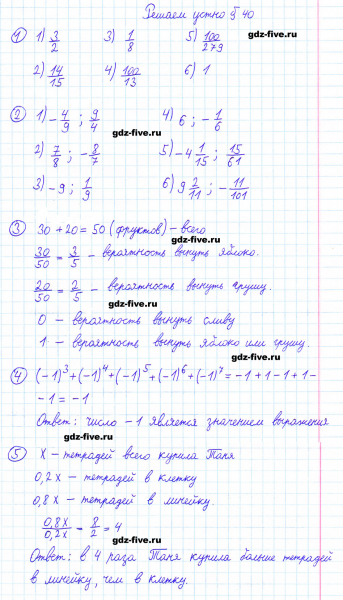 Решаем устно § 40
① 1) 3/2 3) 1/8 5) 100/279
gdz-five.ru
2) 14/15 4) 100/13 6) 1
gdz-five.ru
② 1) - 4/9 ; 9/4 4) 6 ; - 1/6
gdz-five.ru
2) 7/8 ; - 8/7 5) -4 1/15 ; 15/61
3) -9 ; 1/9 6) 9 2/11 ; - 11/101
gdz-five.ru
③ 30 + 20 = 50 (фруктов) - всего
gdz-five.ru
30/50 = 3/5 - вероятность вынуть яблоко.
20/50 = 2/5 - вероятность вынуть грушу.
gdz-five.ru
0 - вероятность вынуть сливу
1 - вероятность вынуть яблоко или грушу.
gdz-five.ru
④ (-1)³+(-1)⁴+(-1)⁵+(-1)⁶+(-1)⁷ = -1 + 1 - 1 + 1 -
- 1 = -1
Ответ: число -1 является значением выражения
gdz-five.ru
⑤ x - тетрадей всего купила Таня
0,2x - тетрадей в клетку
gdz-five.ru
0,8x - тетрадей в линейку.
0,8x/0,2x = 8/2 = 4
gdz-five.ru
Ответ: в 4 раза Таня купила больше тетрадей
в линейку, чем в клетку.